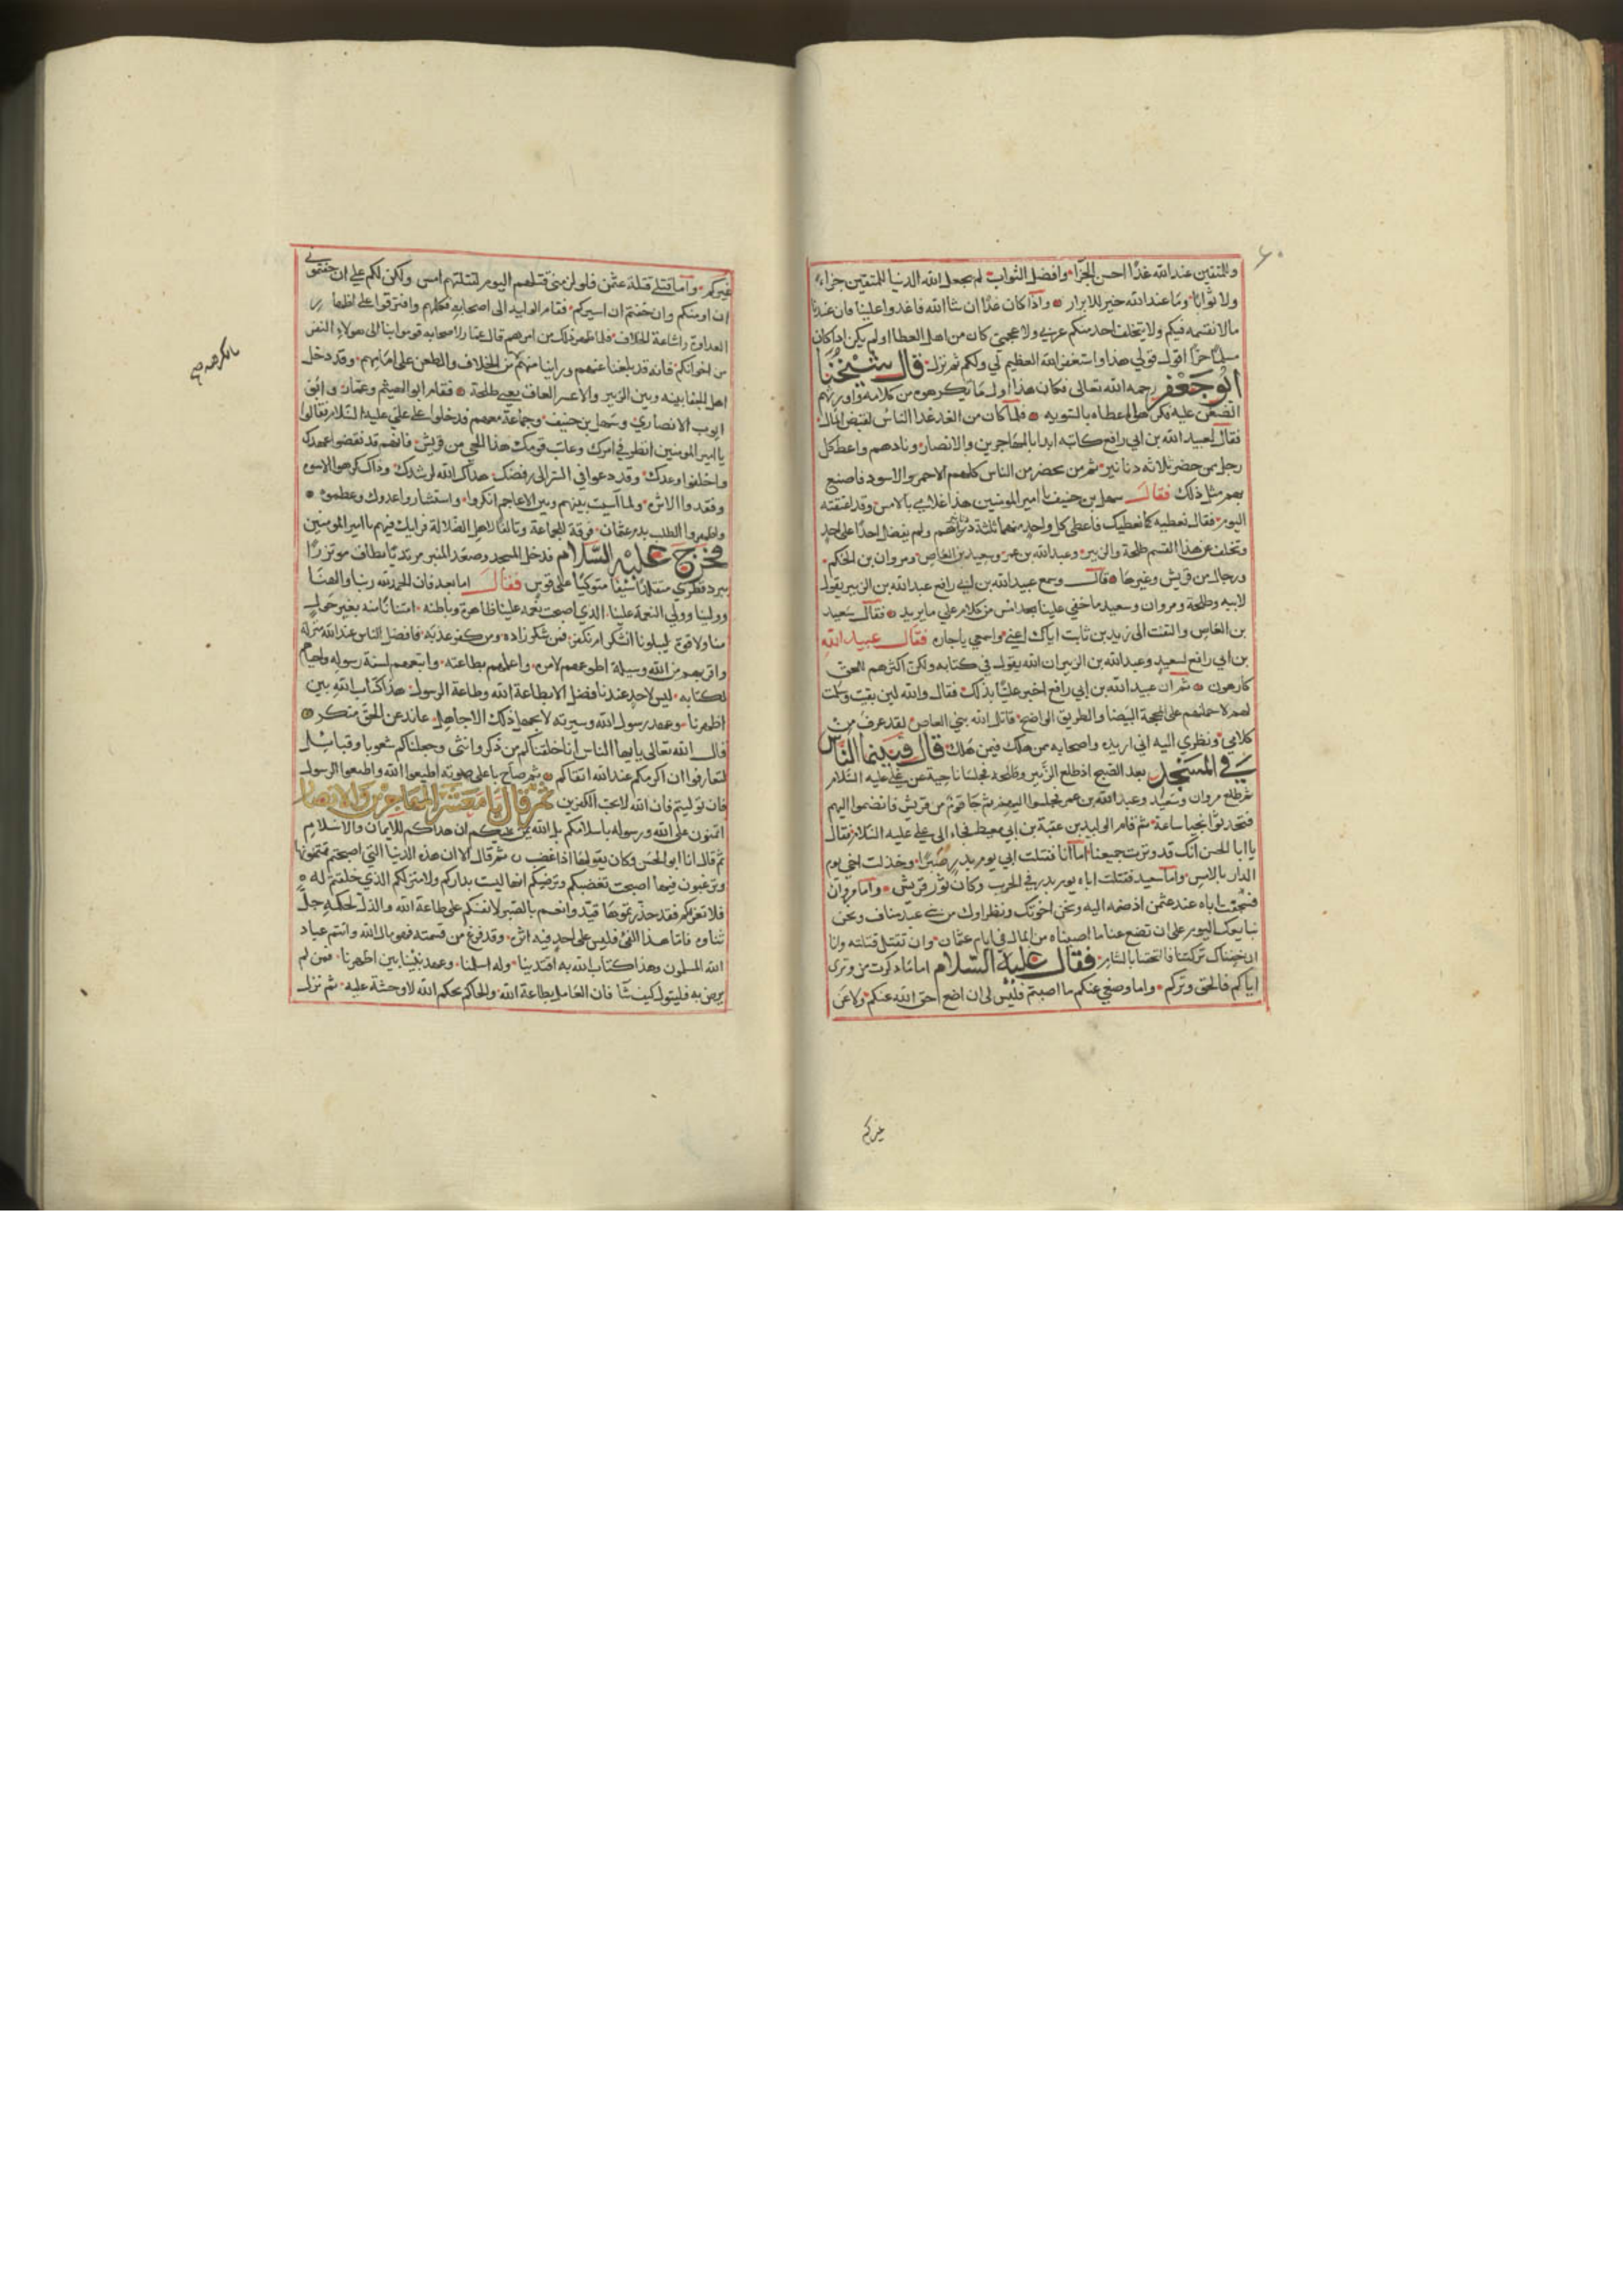 وللمتقين عند الله غدا احسن الجزآ وافضل الثواب لم يجعل الله الدنيا للمتقين جزاء
ولا ثوابا وما عند الله خير للابرار واذا كان غدا ان شا الله فاغدوا علينا فان عندنا
مالا نقسمه فيكم ولا يتخلف احد منكم عربي ولا عجمي كان من اهل العطا اولم يكن اذا كان
مسلما حرا اقول قولي هذا واستغفر الله العظيم لي ولكم ثم نزل قال شيخنا
ابو جعفر رحمه الله تعالى فكان هذا اول ما يكرهوه من كلامه واورثهم
الضغن عليه فكرهوا اعطاه بالسويه فلما كان من الغد غدا الناس لقبض المال
فقال لعبيد الله بن ابي رافع كاتبه ابدا بالمهاجرين والانصار ونادهم واعط كل
رجل من حضر ثلاثه دنانير ثم من يحضر من الناس كلهم الاحمر والاسود فاصنع
بهم مثل ذلك فقال سهل بن حنيف يا امير المومنين هذا غلامي بالامس وقد اعتقته
اليوم فقال نعطيه كما نعطيك فاعطى كل واحد منهما ثلثة دنانير ولم يفضل احدا على احد
وتخلف عن هذا القسم طلحة والزبير وعبد الله بن عمر وسعيد بن العاص ومروان بن الحكم
ورجال من قريش وغيرها قال وسمع عبيد الله بن ابي رافع عبد الله بن الزبير يقول
لابيه وطلحة ومروان وسعيد ما خفي علينا بعد امس من كلام علي ما يريد فقال سعيد
بن العاص والتفت الى زيد بن ثابت اياك اعني واسمعي ياجاره فقال عبيد الله
بن ابي رافع لسعيد وعبد الله بن الزبير ان الله يقول في كتابه ولكن اكثرهم للحق
كارهون ثم ان عبيد الله بن ابي رافع اخبر عليا بذلك فقال والله لين بقيت وسلمت
لهم لاحملنهم على المحجة البيضا والطريق الواضح قاتل الله بني العاص لقد عرف من
كلامي ونظري اليه اني اريده واصحابه من هلك فيمن هلك قال فبينما الناس
في المسجد بعد الصبح اذ طلع الزبير وطلحه فجلسا ناحية عن علي عليه السلام
ثم طلع مروان وسعيد وعبد الله بن عمر فجلسوا اليهم ثم جا قوم من قريش فانضموا اليهم
فتحدثوا نجيا ساعة ثم قام الوليد بن عقبة بن ابي معيط فجاء الى علي عليه السلام فقال
يا ابا الحسن انك قد وترت جميعنا اما انا فقتلت ابي يوم بدر صبرا وخذلت اخي يوم
الدار بالامس واما سعيد فقتلت اباه يوم بدر في الحرب وكان ثور قريش واما مروان
فسخفت اباه عند عثمن اذ ضمه اليه ونحن اخوتك ونظراوك من بني عبد مناف ونحن
نبايعك اليوم على ان تضع عنا ما اصبناه من المال في ايام عثمان وان تقتل قتلته وانا
ان خفناك تركتنا فالتحقنا بالشام فقال عليه السلام اما ما ذكرت من وترى
اياكم فالحق وتركم واما وضعي عنكم ما اصبتم فليس لى ان اضع حق الله عنكم ولا عن
غيركم
غيركم واما قتلي قتلة عثمن فلو لزمنى قتلهم اليوم لقتلتهم امس ولكن لكم علي ان خفتموني
ان اومنكم وان خفتم ان اسيركم فقام الوليد الى اصحابه فكلمهم وافترقوا على اظهار
العداوة واشاعة الخلاف فلما ظهر ذلك من امرهم قال عمار لاصحابه قوموا بنا الى هولاء النفر
من اخوانكم فانه قد بلغنا عنهم وراينا منهم من الخلاف والطعن على امامهم وقد دخل
اهل الجفا بينه وبين الزبير والاعسر العاق يعني طلحة فقام ابو الهيثم وعمار وابو
ايوب الانصاري وسهل بن حنيف وجماعة معهم فدخلوا على علي عليه السلام فقالوا
يا امير المومنين انظر في امرك وعاتب قومك هذا الحي من قريش فانهم قد نقضوا عهدك
واخلفوا وعدك وقد دعوا في السر الى رفضك هداك الله لرشدك وذاك كرهوا الاسوه
وفقدوا الاثره ولما آسيت بينهم وبين الاعاجم انكروا واستشاروا عدوك وعظموه
واظهروا الطلب بدم عثمان فرقة للجماعة وتالفا لاهل الضلالة فرايك فيهم يا امير المومنين
فخرج عليه السلام فدخل المسجد وصعد المنبر مرتديا بطاق موتزرا
ببرد قطري متقلدا سيفا متوكيا على قوس فقال اما بعد فان الحمد لله ربنا والهنا
وولينا وولي النعمة علينا الذي اصبحت نعمه علينا ظاهرة وباطنه امتنانا منه بغير حول
منا ولا قوة ليبلونا انشكر ام نكفر فمن شكر زاده ومن كفر عذبه فافضل الناس عند الله منزلة
واقربهم من الله وسيلة اطوعهم لامره واعلمهم بطاعته واتبعهم لسنة رسوله واحياهم
لكتابه ليس لاحد عندنا فضل الا بطاعة الله وطاعة الرسول هذا كتاب الله بين
اظهرنا وعهد رسول الله وسيرته لا يجهل ذلك الا جاهل عاند عن الحق منكر
قال الله تعالى يايها الناس انا خلقناكم من ذكر وانثى وجعلناكم شعوبا وقبايل
لتعارفوا ان اكرمكم عند الله اتقاكم ثم صاح باعلى صوته اطيعوا الله واطيعوا الرسول
فان توليتم فان الله لا يحب الكفرين ثم قال يا معشر المهاجرين والانصار
اتمنون على الله ورسوله باسلامكم بل الله يمن عليكم ان هداكم للايمان والاسلام
ثم قال انا ابو الحسن وكان يقولها اذا غضب ثم قال الا ان هذه الدنيا التي اصبحتم تمتمونها
وترغبون فيها اصبحت تغضبكم وترضيكم انها ليست بداركم ولا منزلكم الذي خلقتم له
فلا تغرنكم فقد حذرتموها قيد وانعم بالصبر لانفسكم على طاعة الله والذل لحكمه جل
ثناوه فاما هذا الفئ فليس على احد فيه اثره وقد فرغ من قسمته فهو مال الله وانتم عباد
الله المسلمون وهذا كتاب الله به اقتدينا وله اسلمنا وعهد نبينا بين اظهرنا فمن لم
يرض به فليتول كيف شآ فان العامل بطاعة الله والحاكم بحكم الله لا وحشة عليه ثم نزل